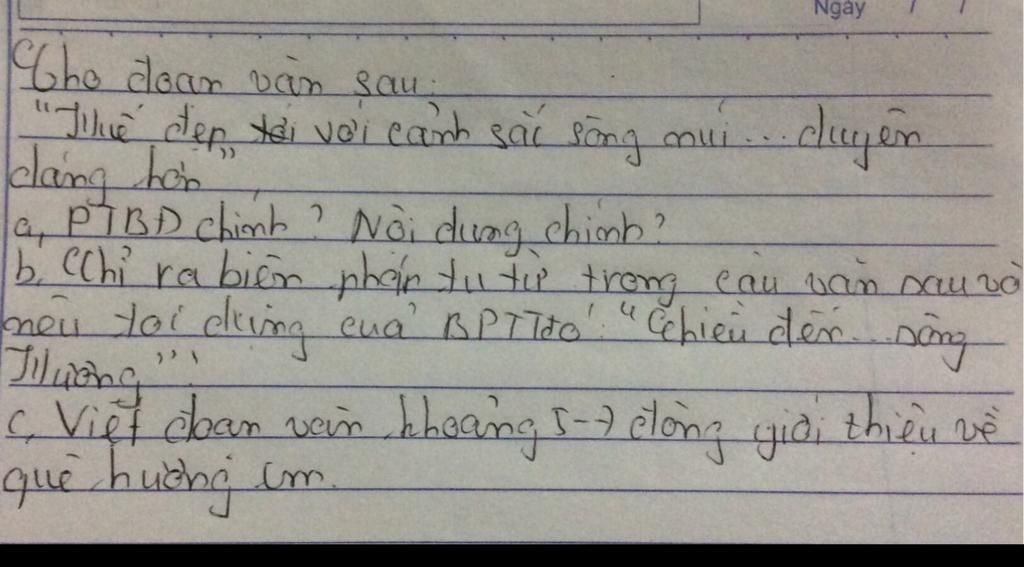 Ngày / /
Cho đoạn văn sau:
"Huế đẹp với cảnh sắc sông núi... duyên
dáng hơn"
a, PTBĐ chính? Nội dung chính?
b, Chỉ ra biện pháp tu từ trong câu văn sau và
nêu tác dụng của BPTT đó: "Chiều đến... sông
Hương".
c, Viết đoạn văn khoảng 5-7 dòng giới thiệu về
quê hương em.